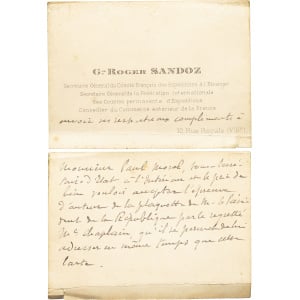 Gn ROGER SANDOZ
Secrétaire Général du Comité Français des Expositions à l'Etranger
Secrétaire Général de la Fédération Internationale
des Comités permanents d'Expositions
Conseiller du Commerce extérieur de la France
envoie ses respectueux compliments à
10, Rue Royale (VIIIe)
Monsieur Paul Morel, sous-secré-
taire d'Etat à l'Intérieur et le prie de
bien vouloir accepter l'épreuve
d'auteur de la plaquette de M. le Prési-
dent de la République par le regretté
Me Chaplain, qu'il se permet de lui
adresser en même temps que cette
carte.